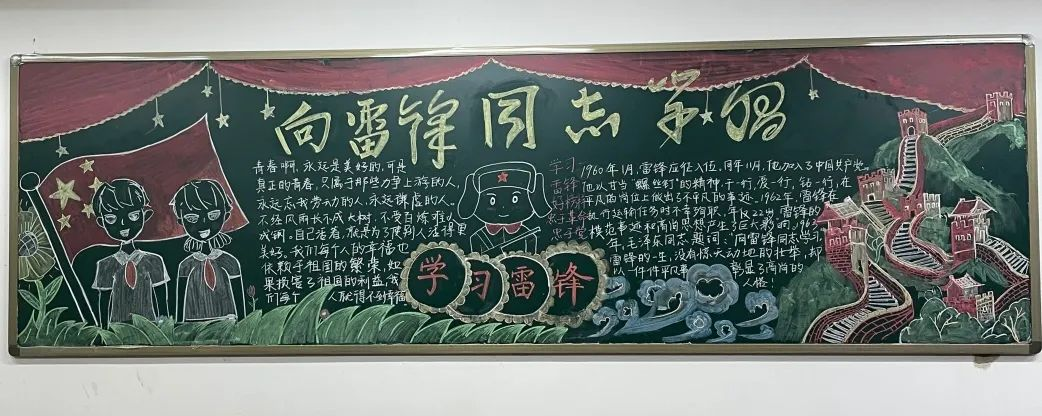 向雷锋同志学习
青春啊,永远是美好的,可是
真正的青春,只属于那些力争上游的人,
永远忘我劳动的人,永远谦虚的人。
不经风雨长不成大树,不受百炼难以
成钢。自己活着,就是为了使别人活得更
美好。我们每个人的幸福也
依赖于祖国的繁荣,如
果损害了祖国的利益,我
们每个人就得不到幸福
学习
雷锋
好榜样
忠于革命
忠于党
1960年1月,雷锋应征入伍,同年11月,他加入了中国共产党
他以甘当"螺丝钉"的精神,干一行,爱一行,钻一行,在
平凡的岗位上做出了不平凡的事迹。1962年,雷锋在
执行运输任务时不幸殉职,年仅22岁,雷锋的
模范事迹和高尚思想产生了巨大影响,1963
年,毛泽东同志题词:"向雷锋同志学习
雷锋的一生,没有惊天动地的壮举,却
以一件件平凡事 彰显了高尚的
人格!
学习雷锋